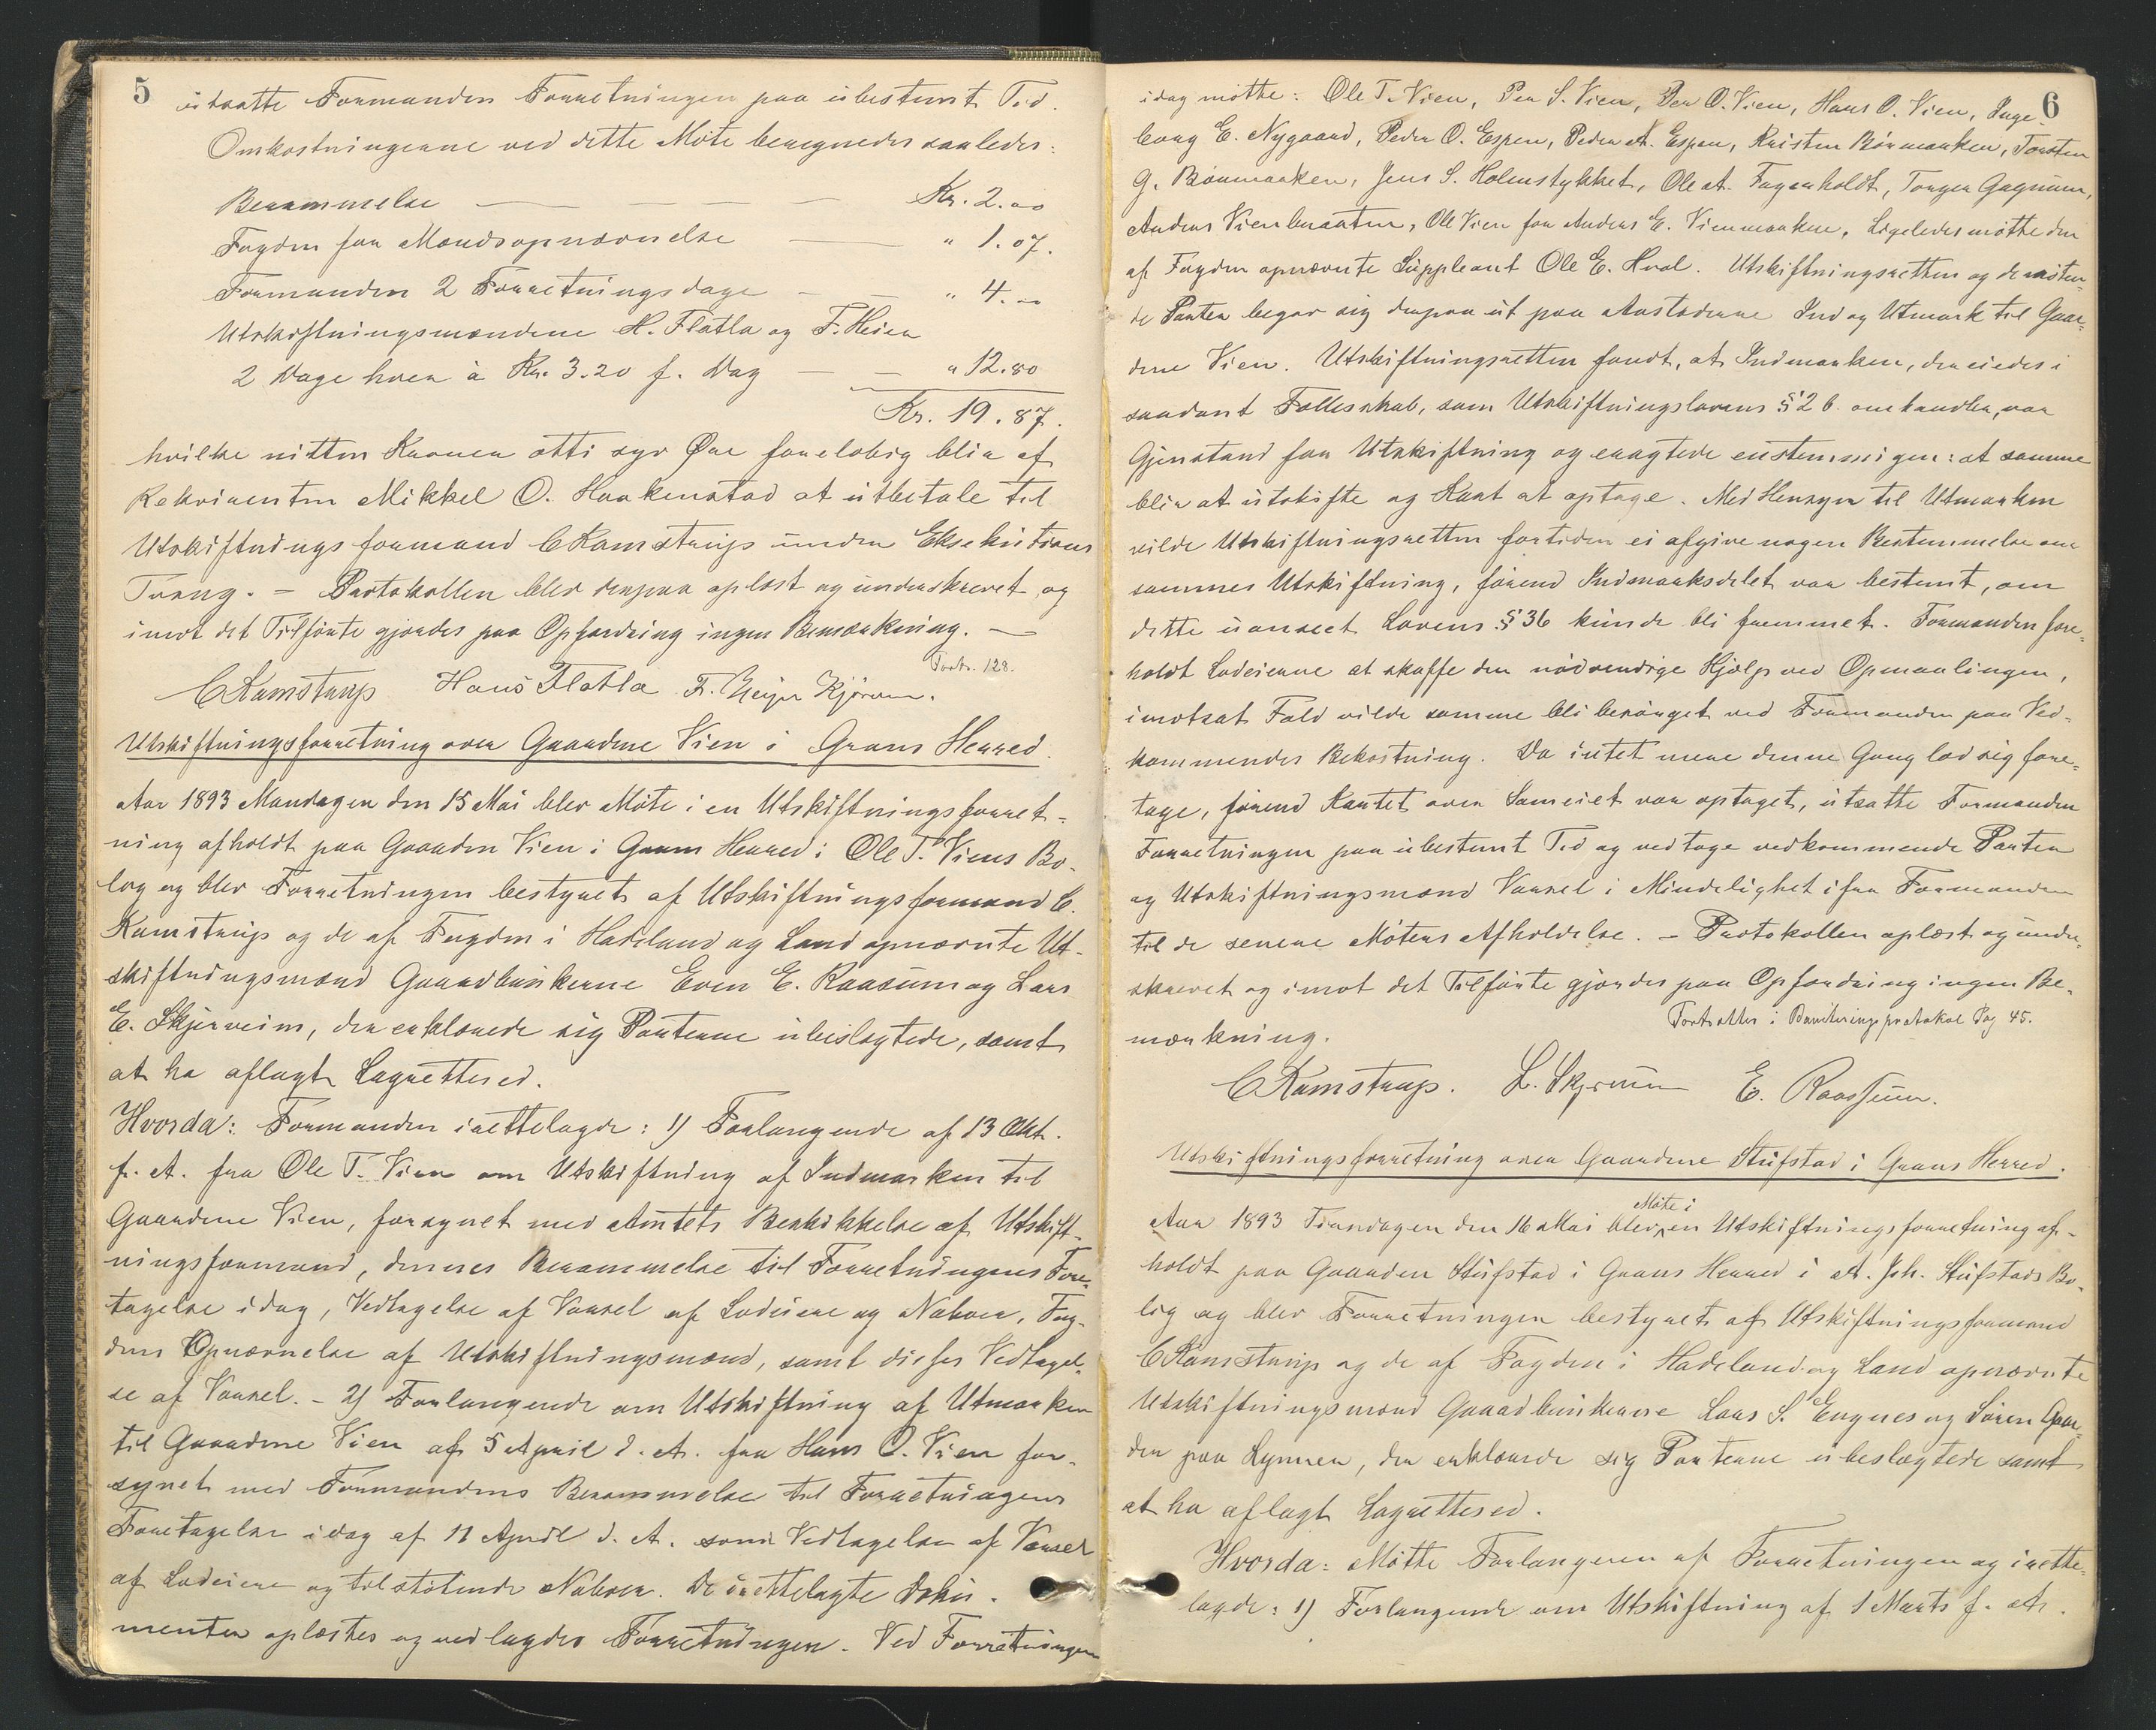 5
utsatte Formanden Forretningen paa ubestemt Tid.
Omkostningerne ved dette Møte beregnedes saaledes:
Berammelse — — — Kr. 2.00
Fogden for Mandsopnævnelse — " 1.07.
Formanden 2 Forretningsdage — — " 4.00
Utskiftningsmændene H. Flatla og F. Heier
2 Dage hver à Kr. 3.20 f. Dag — — " 12.80
Kr. 19.87.
hvilke nitten Kroner otti syv Øre foreløbig blir af
Rekvirenten Mikkel O. Haakenstad at utbetale til
Utskiftningsformand C Kamstrup under Eksekutions
Tvang. – Protokollen blev derpaa oplæst og underskrevet og
imot det Tilførte gjordes paa Opfordring ingen Bemærkning. —
Forts. 128.
C Kamstrup Hans Flatla F. Heijer Kjørven.
Utskiftningsforretning over Gaardene Vien i Grans Herred.
Aar 1893 Mandagen den 15 Mai blev Møte i en Utskiftningsforret-
ning afholdt paa Gaarden Vien i Grans Herred i Ole T. Viens Bo-
log og blev Forretningen bestyret af Utskiftningsformand C.
Kamstrup og de af Fogden i Hadeland og Land opnævnte Ut-
skiftningsmænd Gaardbrukerne Even E. Raasum og Lars
E. Skjerveim, der erklærede sig Parterne ubeslægtede, samt
at ha aflagt Lagrettesed.
Hvorda: Formanden irettelagde: 1) Forlangende af 13 Okt.
f. A. fra Ole T. Vien om Utskiftning af Indmarken til
Gaardene Vien, forsynet med Amtets Beskikkelse af Utskift-
ningsformand, dennes Berammelse til Forretningens Fore-
tagelse idag, Vedtagelse af Varsel af Lodeiere og Naboer, Fog-
dens Opnævnelse af Utskiftningsmænd, samt disses Vedtagel-
se af Varsel. – 2) Forlangende om Utskiftning af Utmarken
til Gaardene Vien af 5 April d. A. fra Hans O. Vien for-
synet med Formandens Berammelse til Forretningens
Foretagelse idag af 11 April d. A. samt Vedtagelse af Varsel
af Lodeiere og tilstøtende Naboer. De irettelagte Doku-
menter oplæstes og vedlagdes Forretningen. Ved Forretningen
6
idag møtte: Ole T. Vien, Per S. Vien, Per O. Vien, Hans O. Vien, Inge-
borg E. Nygaard, Peder O. Espen, Peder A. Espen, Kristen Børmarken, Torsten
G. Børmarken, Jens S. Holmstykket, Ole A. Fagerholdt, Torger Gagnum,
Anders Vienbraaten, Ole Vien for Anders E. Vienmarken. Ligeledes møtte den
af Fogden opnævnte Suppleant Ole E. Hval. Utskiftningsretten og de møten-
de Parter begav sig derpaa ut paa Aastederne Ind og Utmark til Gaar-
dene Vien. Utskiftningsretten fandt, at Indmarken, der eiedes i
saadant Fællesskab, som Utskiftningslovens § 2 b. omhandler, var
Gjenstand for Utskiftning og eragtede enstemmigen: at samme
blir at utskifte og Kart at optage. Med Hensyn til Utmarken
vilde Utskiftningsretten fortiden ei afgive nogen Bestemmelse om
sammes Utskiftning, førend Indmarksdelet var bestemt, om
dette uanseet Lovens § 36 kunde bli fremmet. Formanden fore-
holdt Lodeierne at skaffe den nødvendige Hjælp ved Opmaalingen,
imotsat Fald vilde samme bli besørget ved Formanden paa Ved-
kommendes Bekostning. Da intet mere denne Gang lod sig fore-
tage, førend Kartet over Sameiet var optaget, utsatte Formanden
Forretningen paa ubestemt Tid og vedtoge vedkommende Parter
og Utskiftningsmænd Varsel i Mindelighet ifra Formanden
til de senere Møters Afholdelse. – Protokollen oplæst og under-
skrevet og imot det Tilførte gjordes paa Opfordring ingen Be-
mærkning.
Fortsættes i Boniteringsprotokol Pag 45.
C Kamstrup. L. Skjerveim E. Raassum.
Utskiftningsforretning over Gaardene Stufstad i Grans Herred.
Aar 1893 Tirsdagen den 16 Mai blev Møte i en Utskiftningsforretning af-
holdt paa Gaarden Stufstad i Grans Herred i A. Joh. Stufstads Bo-
lig og blev Forretningen bestyret af Utskiftningsformand
C Kamstrup og de af Fogden i Hadeland og Land opnævnte
Utskiftningsmænd Gaardbrukerne Lars S. Engnes og Søren Gaar-
der paa Lynner, der erklærede sig Parterne ubeslægtede samt
at ha aflagt Lagrettesed.
Hvorda: Møtte Forlangeren af Forretningen og irette-
lagde: 1) Forlangende om Utskiftning af 1 Marts f. A.